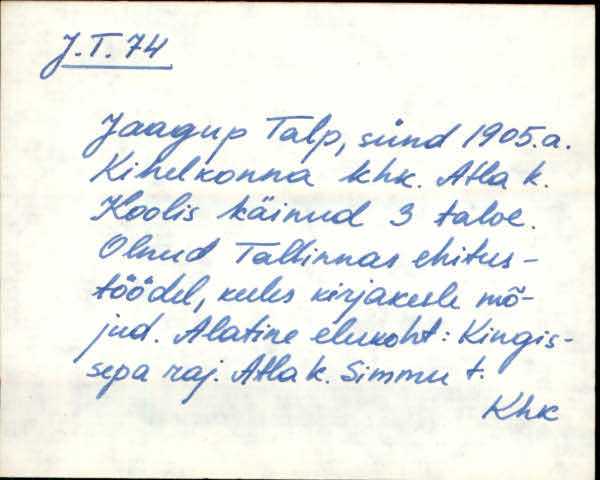 J.T. 74
Jaagup Talp, sünd 1905.a.
Kihelkonna khk. Atla k.
Koolis käinud 3 talve.
Olnud Tallinnas ehitus-
töödel, keeles kirjakeele mõ-
jud. Alatine elukoht: Kingis-
sepa raj. Atla k. Simmu t.
Khk